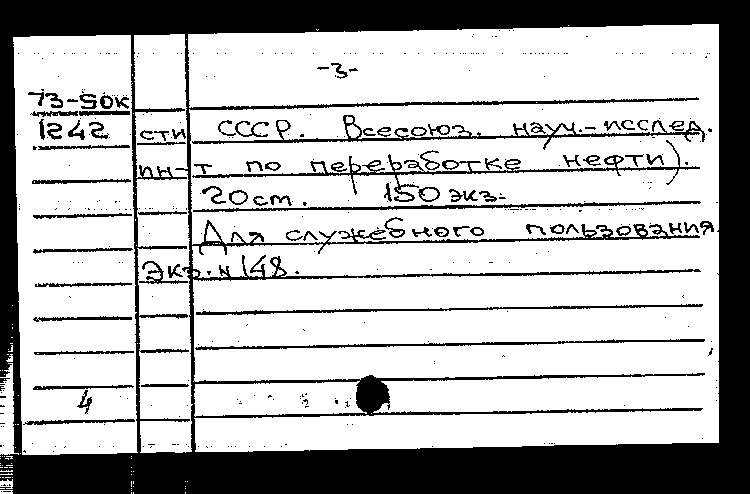 -3-
73-50к
1242 сти СССР. Всесоюз. науч.-исслед.
ин-т по переработке нефти).
20 cm. 150 экз.
Для служебного пользования
Экз. N 148.
4